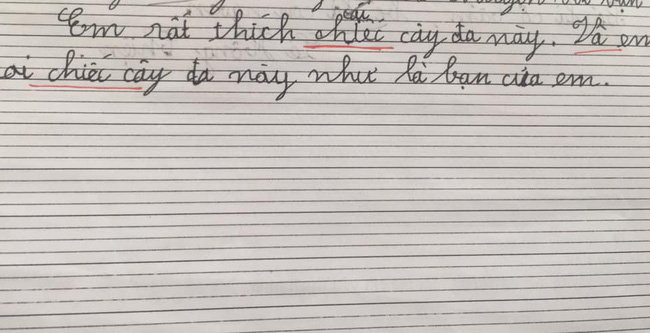 Em rất thích chiếc cây đa này. Và em
ơi chiếc cây đa này như là bạn của em.